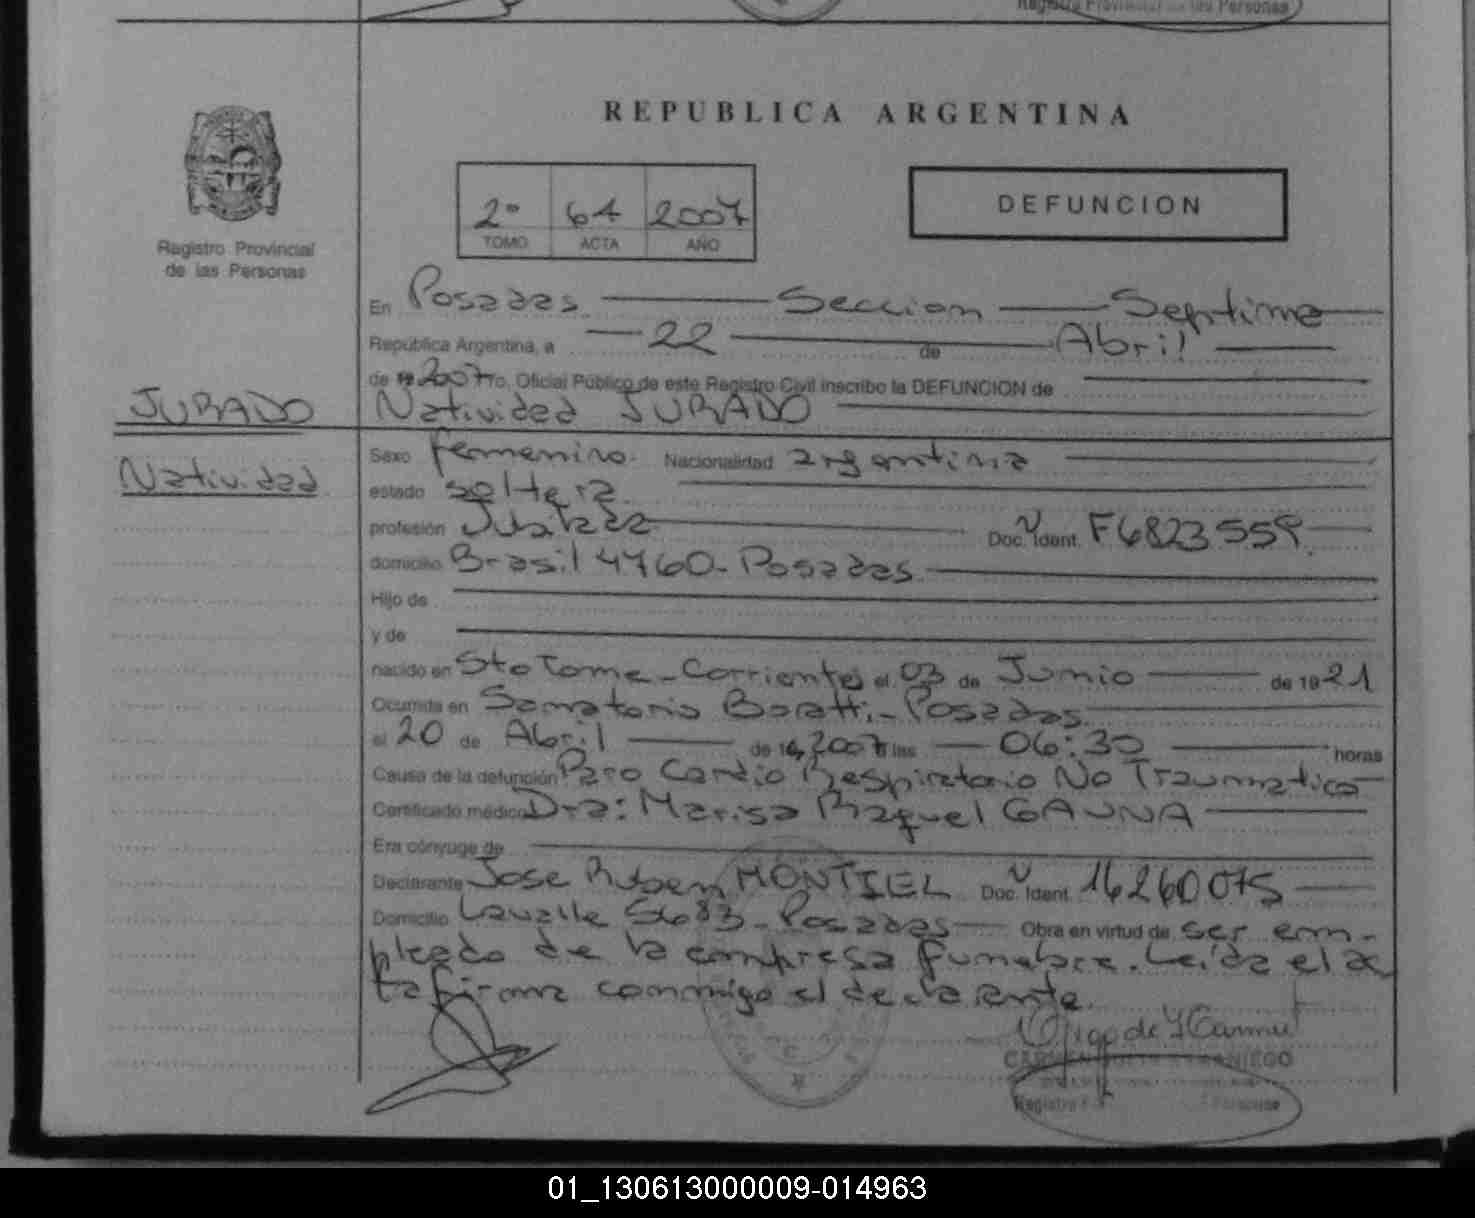 Registro Provincial de las Personas
REPUBLICA ARGENTINA
2º 64 2007
TOMO ACTA AÑO
DEFUNCION
Registro Provincial
de las Personas
En Posadas Seccion Septima
República Argentina, a 22 de Abril
de 19 2007 Yo, Oficial Público de este Registro Civil inscribo la DEFUNCION de
JURADO
Natividad
Natividad JURADO
Sexo femenino. Nacionalidad argentina
estado soltera.
profesión Doc. Ident. F6823559.
domicilio Brasil 4760 - Posadas.
Hijo de
y de
nacido en Sto Tome - Corrientes el 03 de Junio de 1921
Ocurrida en Sanatorio Boratti - Posadas
el 20 de Abril de 19 2007 a las 06:30 horas
Causa de la defunción Paro Cardio Respiratorio No Traumatico
Certificado médico Dra: Marisa Raquel GAUNA
Era cónyuge de
Declarante Jose Ruben MONTIEL Doc. Ident. 16260075
Domicilio Lavalle 5683 - Posadas Obra en virtud de ser em-
pleado de la empresa funebre. Leida el ac
ta firma conmigo el declarante.
CARMEN
Registro
01_130613000009-014963